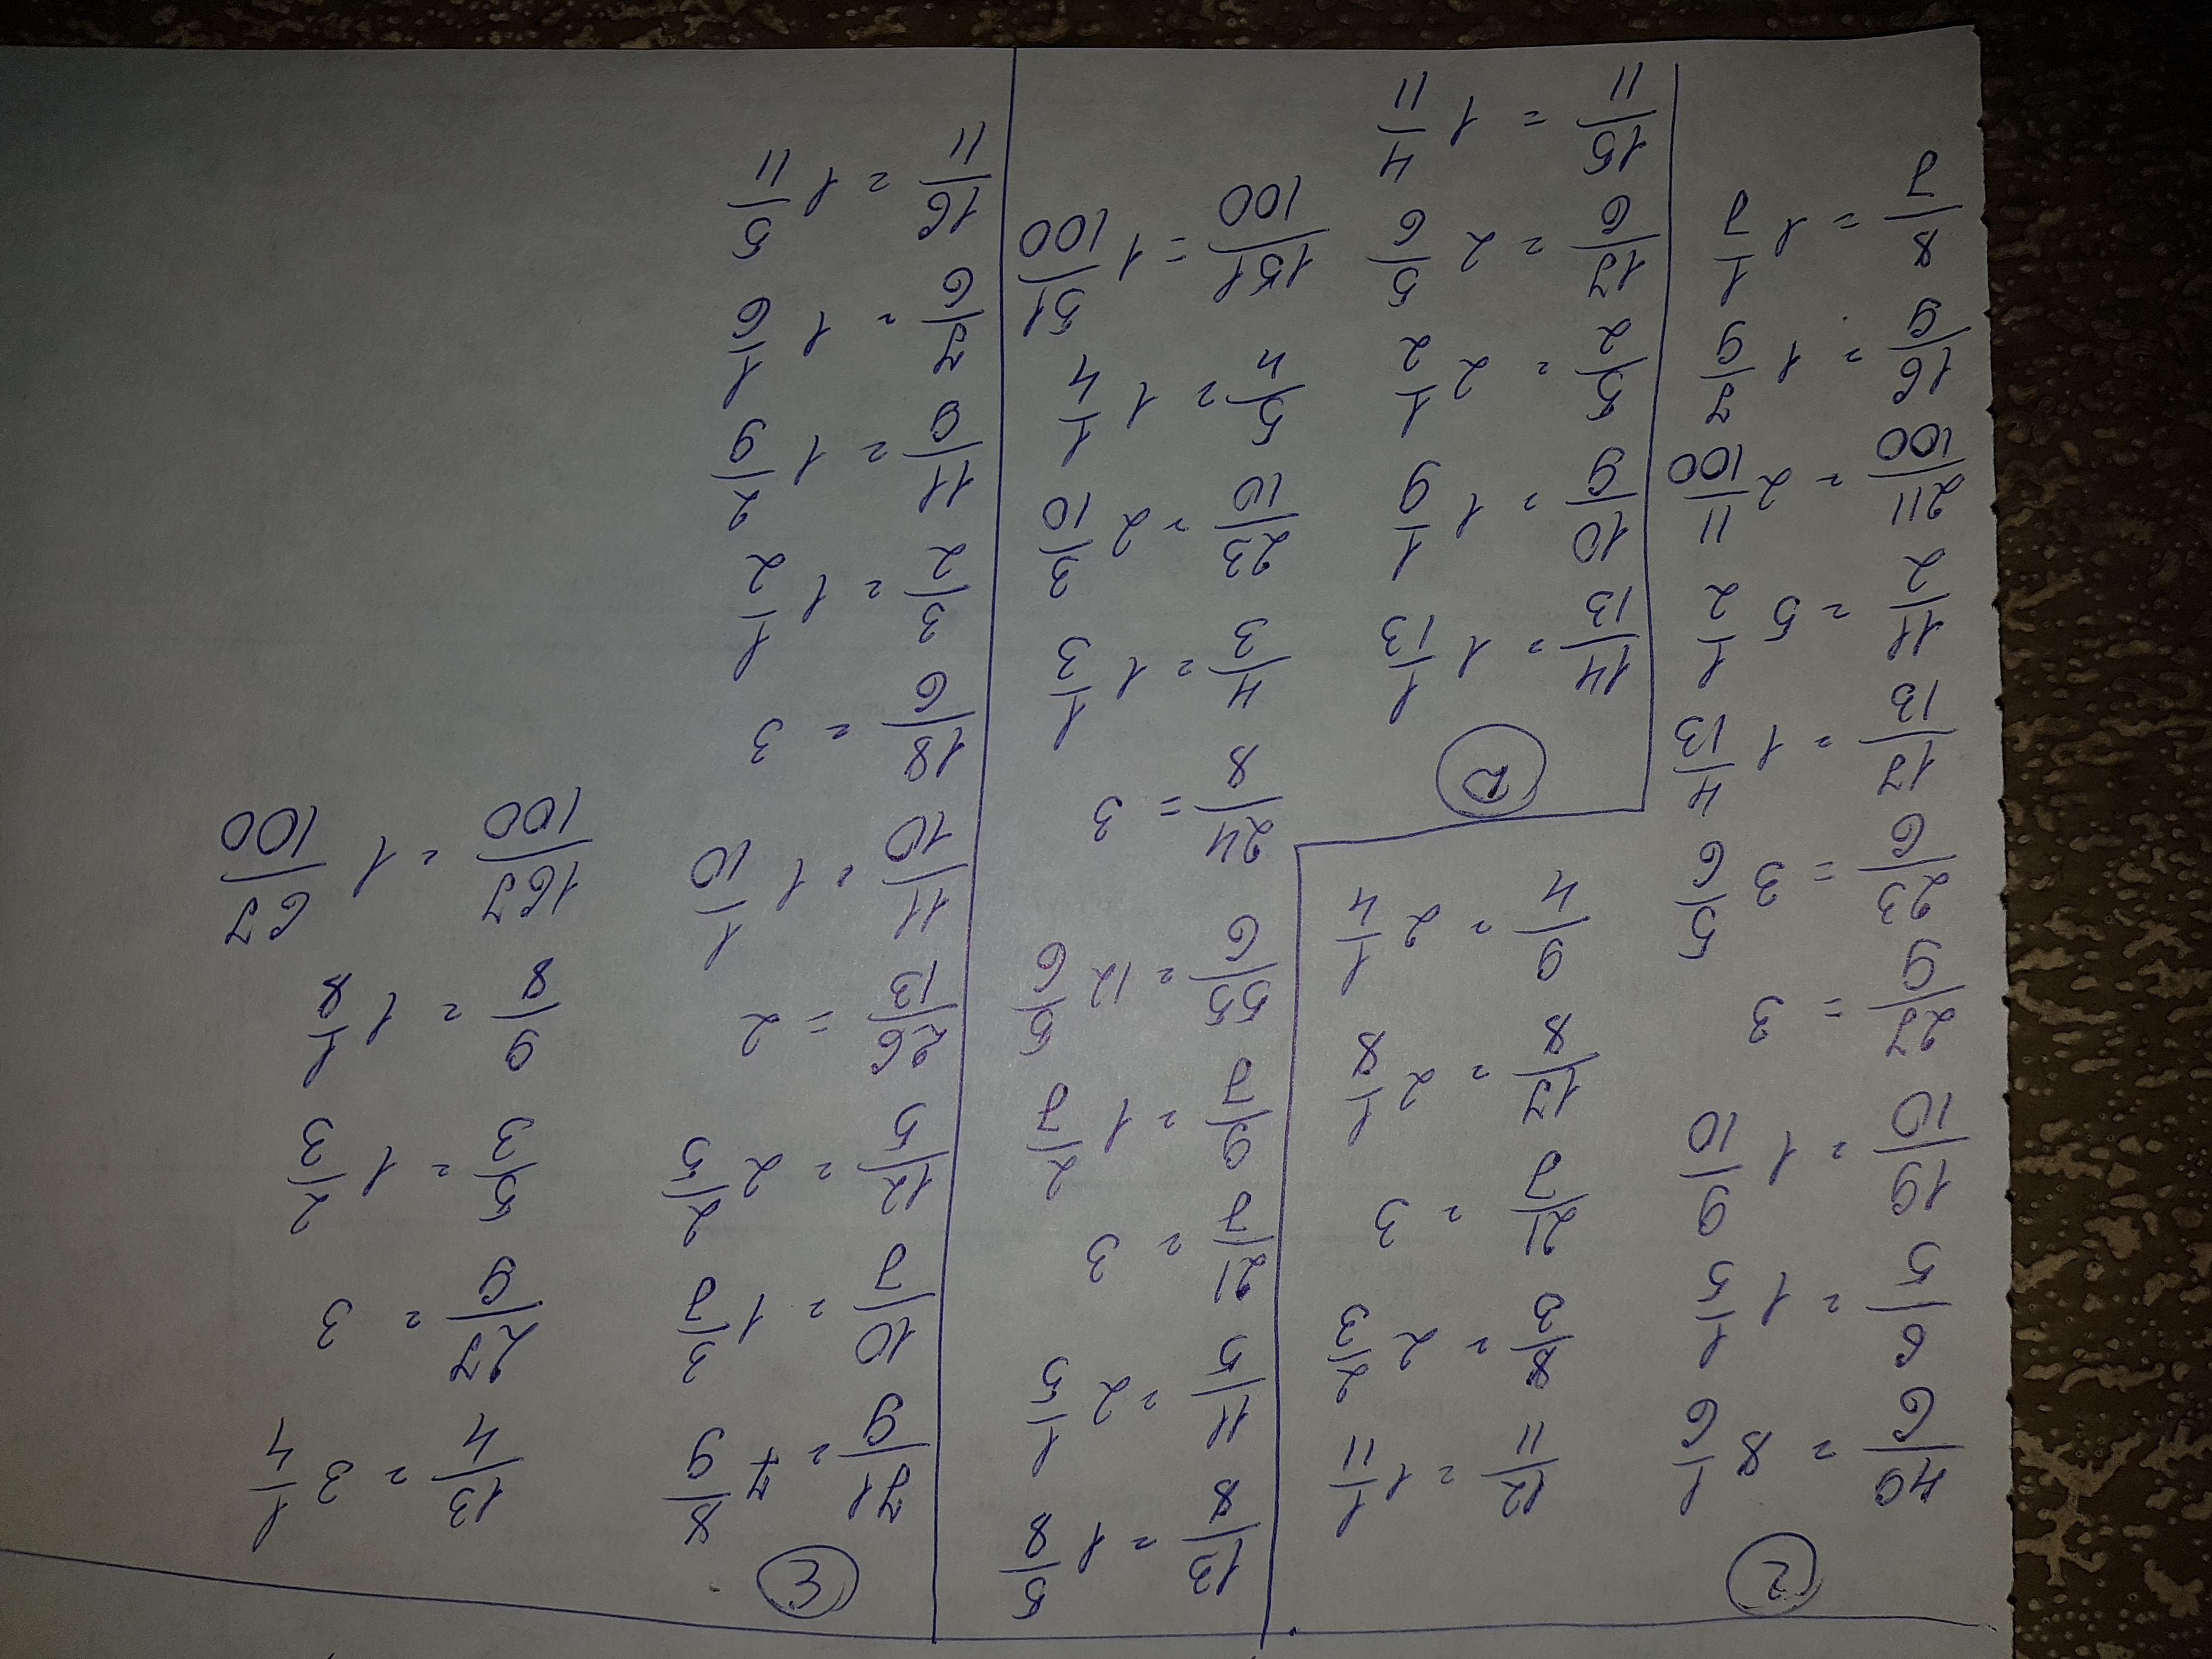 2
49/6 = 8 1/6
6/5 = 1 1/5
19/10 = 1 9/10
27/9 = 3
23/6 = 3 5/6
17/13 = 1 4/13
11/2 = 5 1/2
211/100 = 2 11/100
16/9 = 1 7/9
8/7 = 1 1/7
12/11 = 1 1/11
8/3 = 2 2/3
21/7 = 3
17/8 = 2 1/8
9/4 = 2 1/4
14/13 = 1 1/13
10/9 = 1 1/9
5/2 = 2 1/2
17/6 = 2 5/6
15/11 = 1 4/11
13/8 = 1 5/8
11/5 = 2 1/5
21/7 = 3
9/7 = 1 2/7
55/6 = 12 5/6
24/8 = 3
4/3 = 1 1/3
23/10 = 2 3/10
5/4 = 1 1/4
151/100 = 1 51/100
3
71/9 = 7 8/9
10/7 = 1 3/7
12/5 = 2 2/5
26/13 = 2
11/10 = 1 1/10
18/6 = 3
3/2 = 1 1/2
11/9 = 1 2/9
7/6 = 1 1/6
16/11 = 1 5/11
13/4 = 3 1/4
27/9 = 3
5/3 = 1 2/3
9/8 = 1 1/8
167/100 = 1 67/100